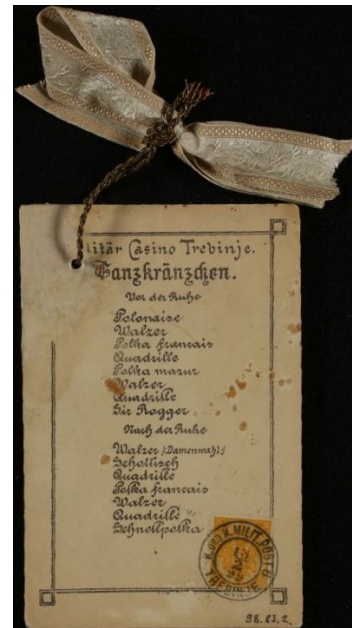 litär Casino Trebinje.
Tanzkränzchen.
Vor der Ruhe
Polonaise
Walzer
Polka francais
Quadrille
Polka mazur
Walzer
Quadrille
Sir Rogger
Nach der Ruhe
Walzer /:Damenwahl:/
Schottisch
Quadrille
Polka francais
Walzer
Quadrille
Schnellpolka
K. UND K. MILIT. POST
TREBINJE
98.83.2.